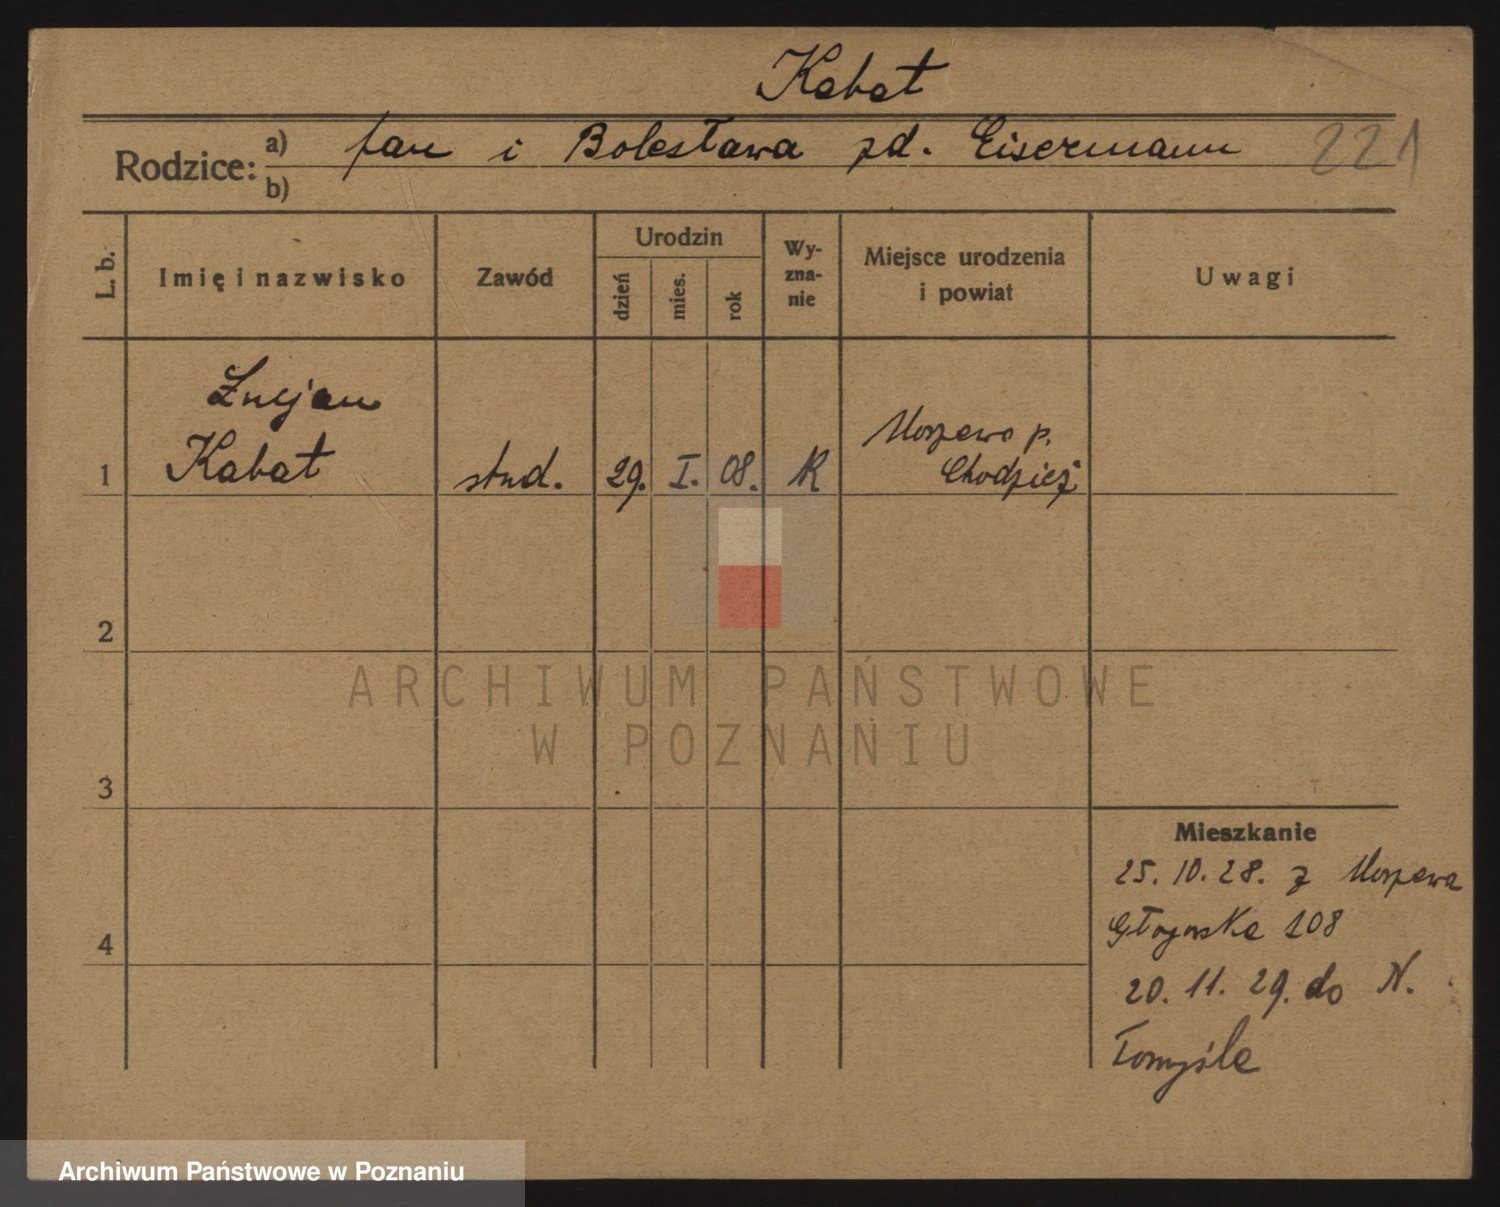 Kabat
Rodzice: a) Jan i Bolesława zd. Eisermann 221
b)
L. b. Imię i nazwisko Zawód Urodzin dzień mies. rok Wy-zna-nie Miejsce urodzenia i powiat Uwagi
Lucjan
1 Kabat stud. 29. I. 08. R Morzewo p.
Chodzież
2
ARCHIWUM PAŃSTWOWE
W POZNANIU
3
Mieszkanie
25. 10. 28. z Morzewa
4 Głogowska 108
20. 11. 29. do N.
Tomyśla
Archiwum Państwowe w Poznaniu